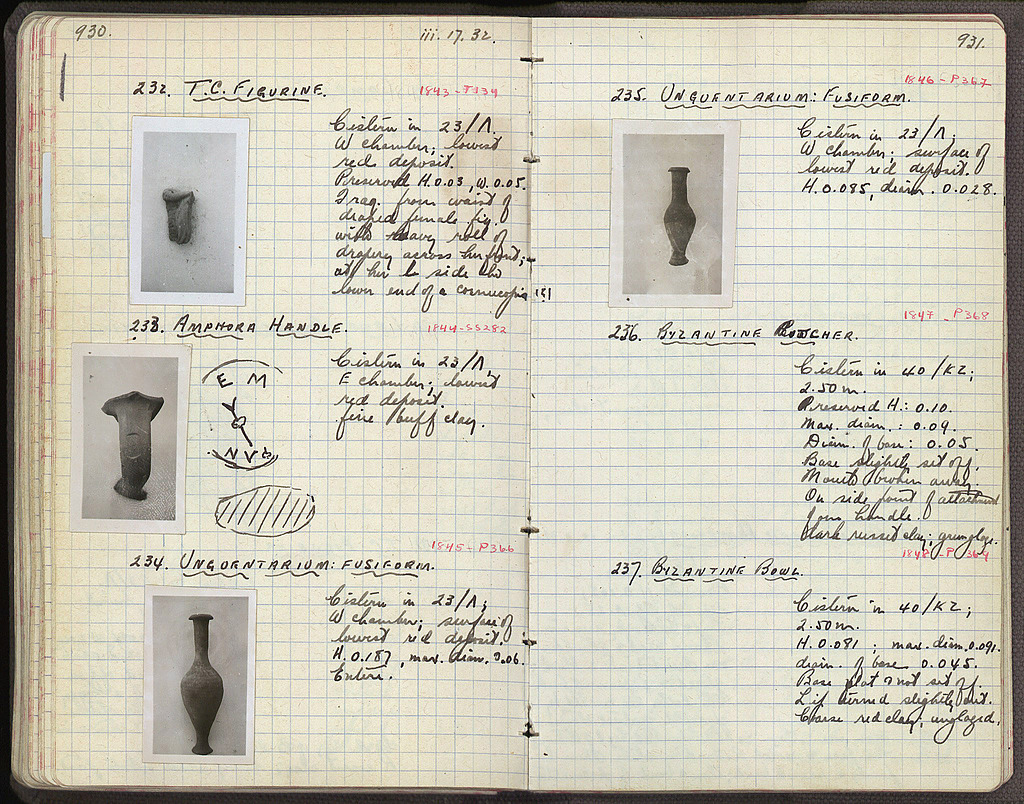 930.
iii. 17. 32.
232. T.C. FIGURINE.
1843 - T139
Cistern in 23/Λ.
W chamber; lowest
red deposit.
Preserved H. 0.03, W. 0.05.
Frag. from waist of
draped female fig.
with heavy roll of
drapery across her front;
at her l. side the
lower end of a cornucopia (?)
233. AMPHORA HANDLE.
1844 - SS282
Cistern in 23/Λ
E chamber; lowest
red deposit.
fine buff clay.
E M
234. UNGUENTARIUM: FUSIFORM.
1845 - P366
Cistern in 23/Λ;
W chamber; surface of
lowest red deposit.
H. 0.187, max. diam. 0.06.
Entire.
931.
235. UNGUENTARIUM: FUSIFORM.
1846 - P367
Cistern in 23/Λ;
W chamber; surface of
lowest red deposit.
H. 0.085, diam. 0.028.
236. BYZANTINE
1847 - P368
Cistern in 40/ΚΖ;
2.50 m.
Preserved H.: 0.10.
Max. diam.: 0.09.
Diam. of base: 0.05.
Base slightly set off.
Mouth broken away.
On side point of attachment
for handle.
Dark russet clay;
237. BYZANTINE BOWL.
1848 - P369
Cistern in 40/ΚΖ;
2.50 m.
H. 0.081; max. diam. 0.091.
diam. of base 0.045.
Base flat & not set off.
Lip turned slightly out.
Coarse red clay, unglazed.